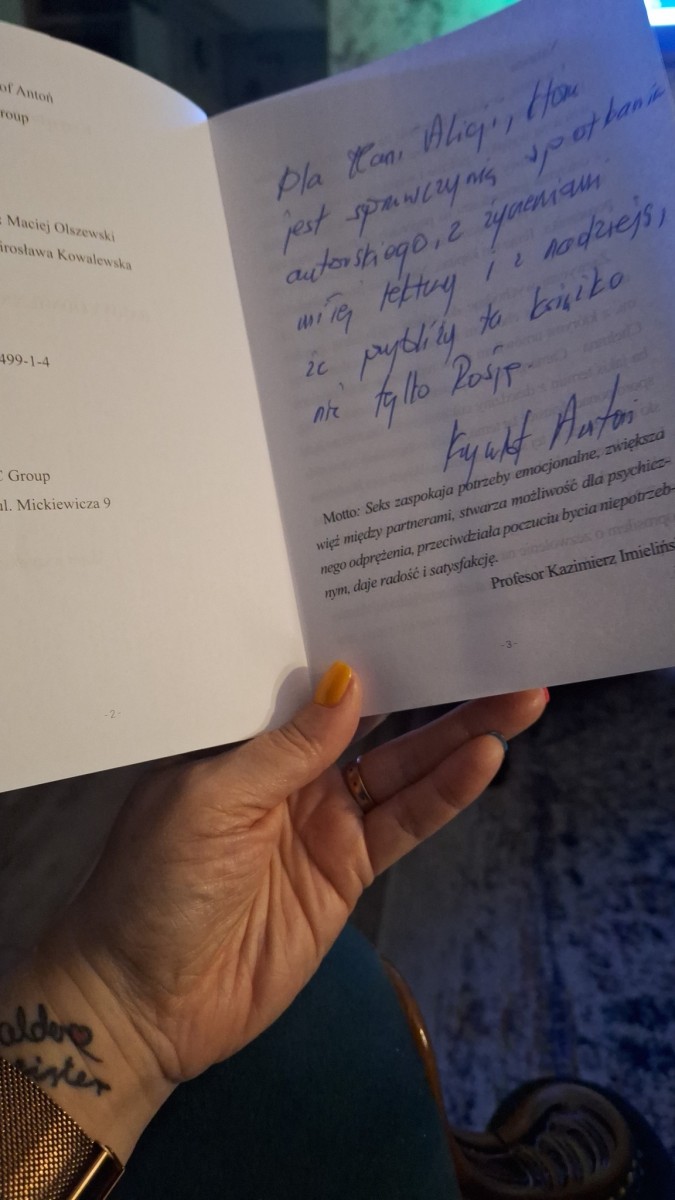 of Antoń
roup
: Maciej Olszewski
irosława Kowalewska
499-1-4
C Group
ul. Mickiewicza 9
- 2 -
Dla Pani Alicji, która
jest sprawczynią spotkania
autorskiego, z życzeniami
miłej lektury i z nadzieją,
że przybliży ta książka
nie tylko Rosję.
Krzysztof Antoń
Motto: Seks zaspokaja potrzeby emocjonalne, zwiększa
więź między partnerami, stwarza możliwość dla psychicz-
nego odprężenia, przeciwdziała poczuciu bycia niepotrzeb-
nym, daje radość i satysfakcję.
Profesor Kazimierz Imielińs
- 3 -